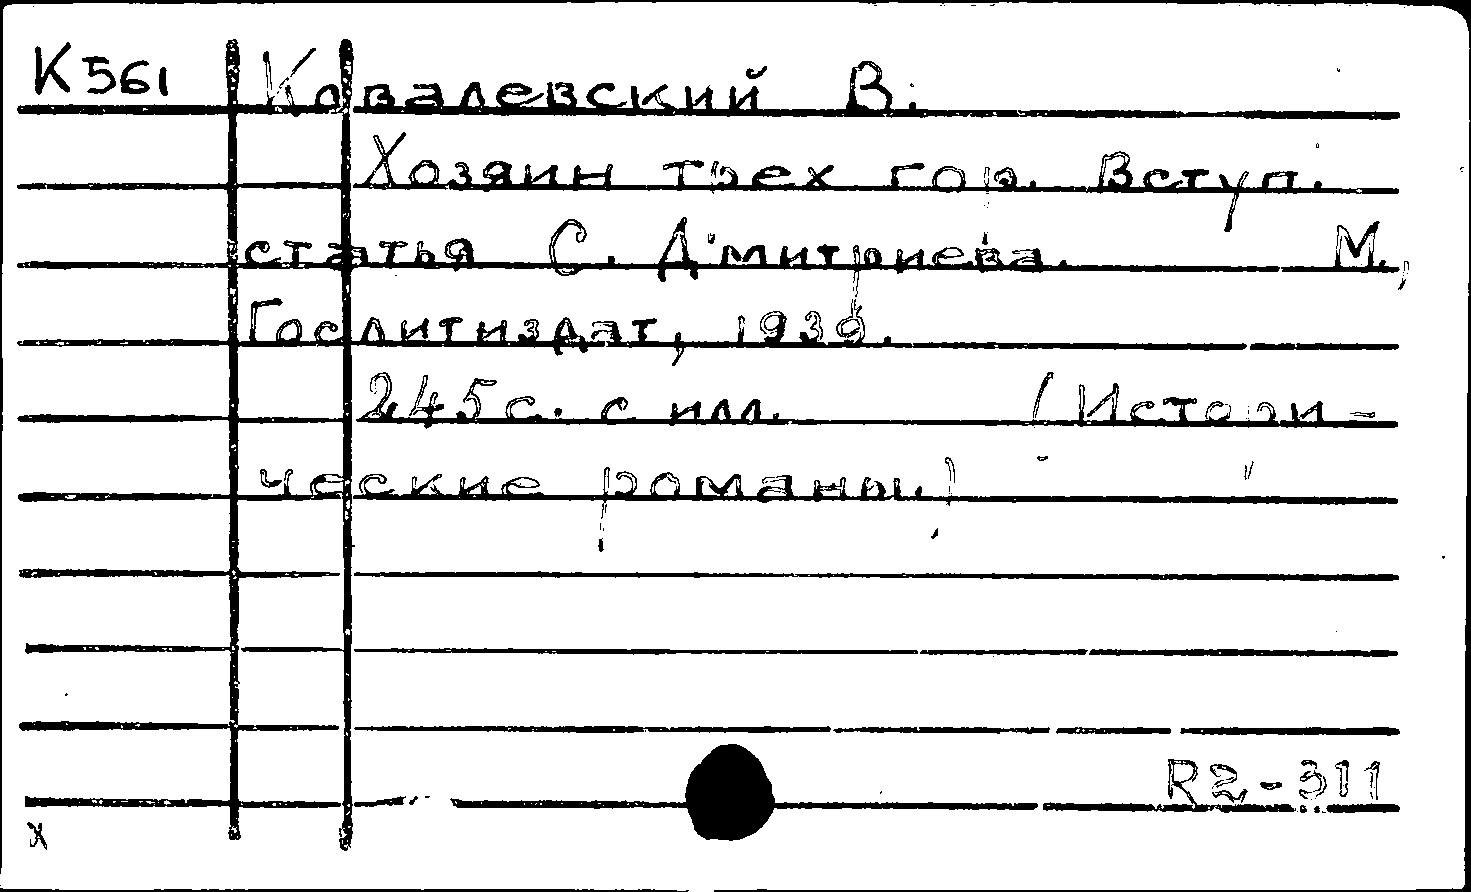 К561 Ковалевский В.
Хозяин трех гор. Вступ.
статья С. Дмитриева. М.,
Гослитиздат, 1939.
245с. с илл. (Истори-
ческие романы.)
R2-311
x